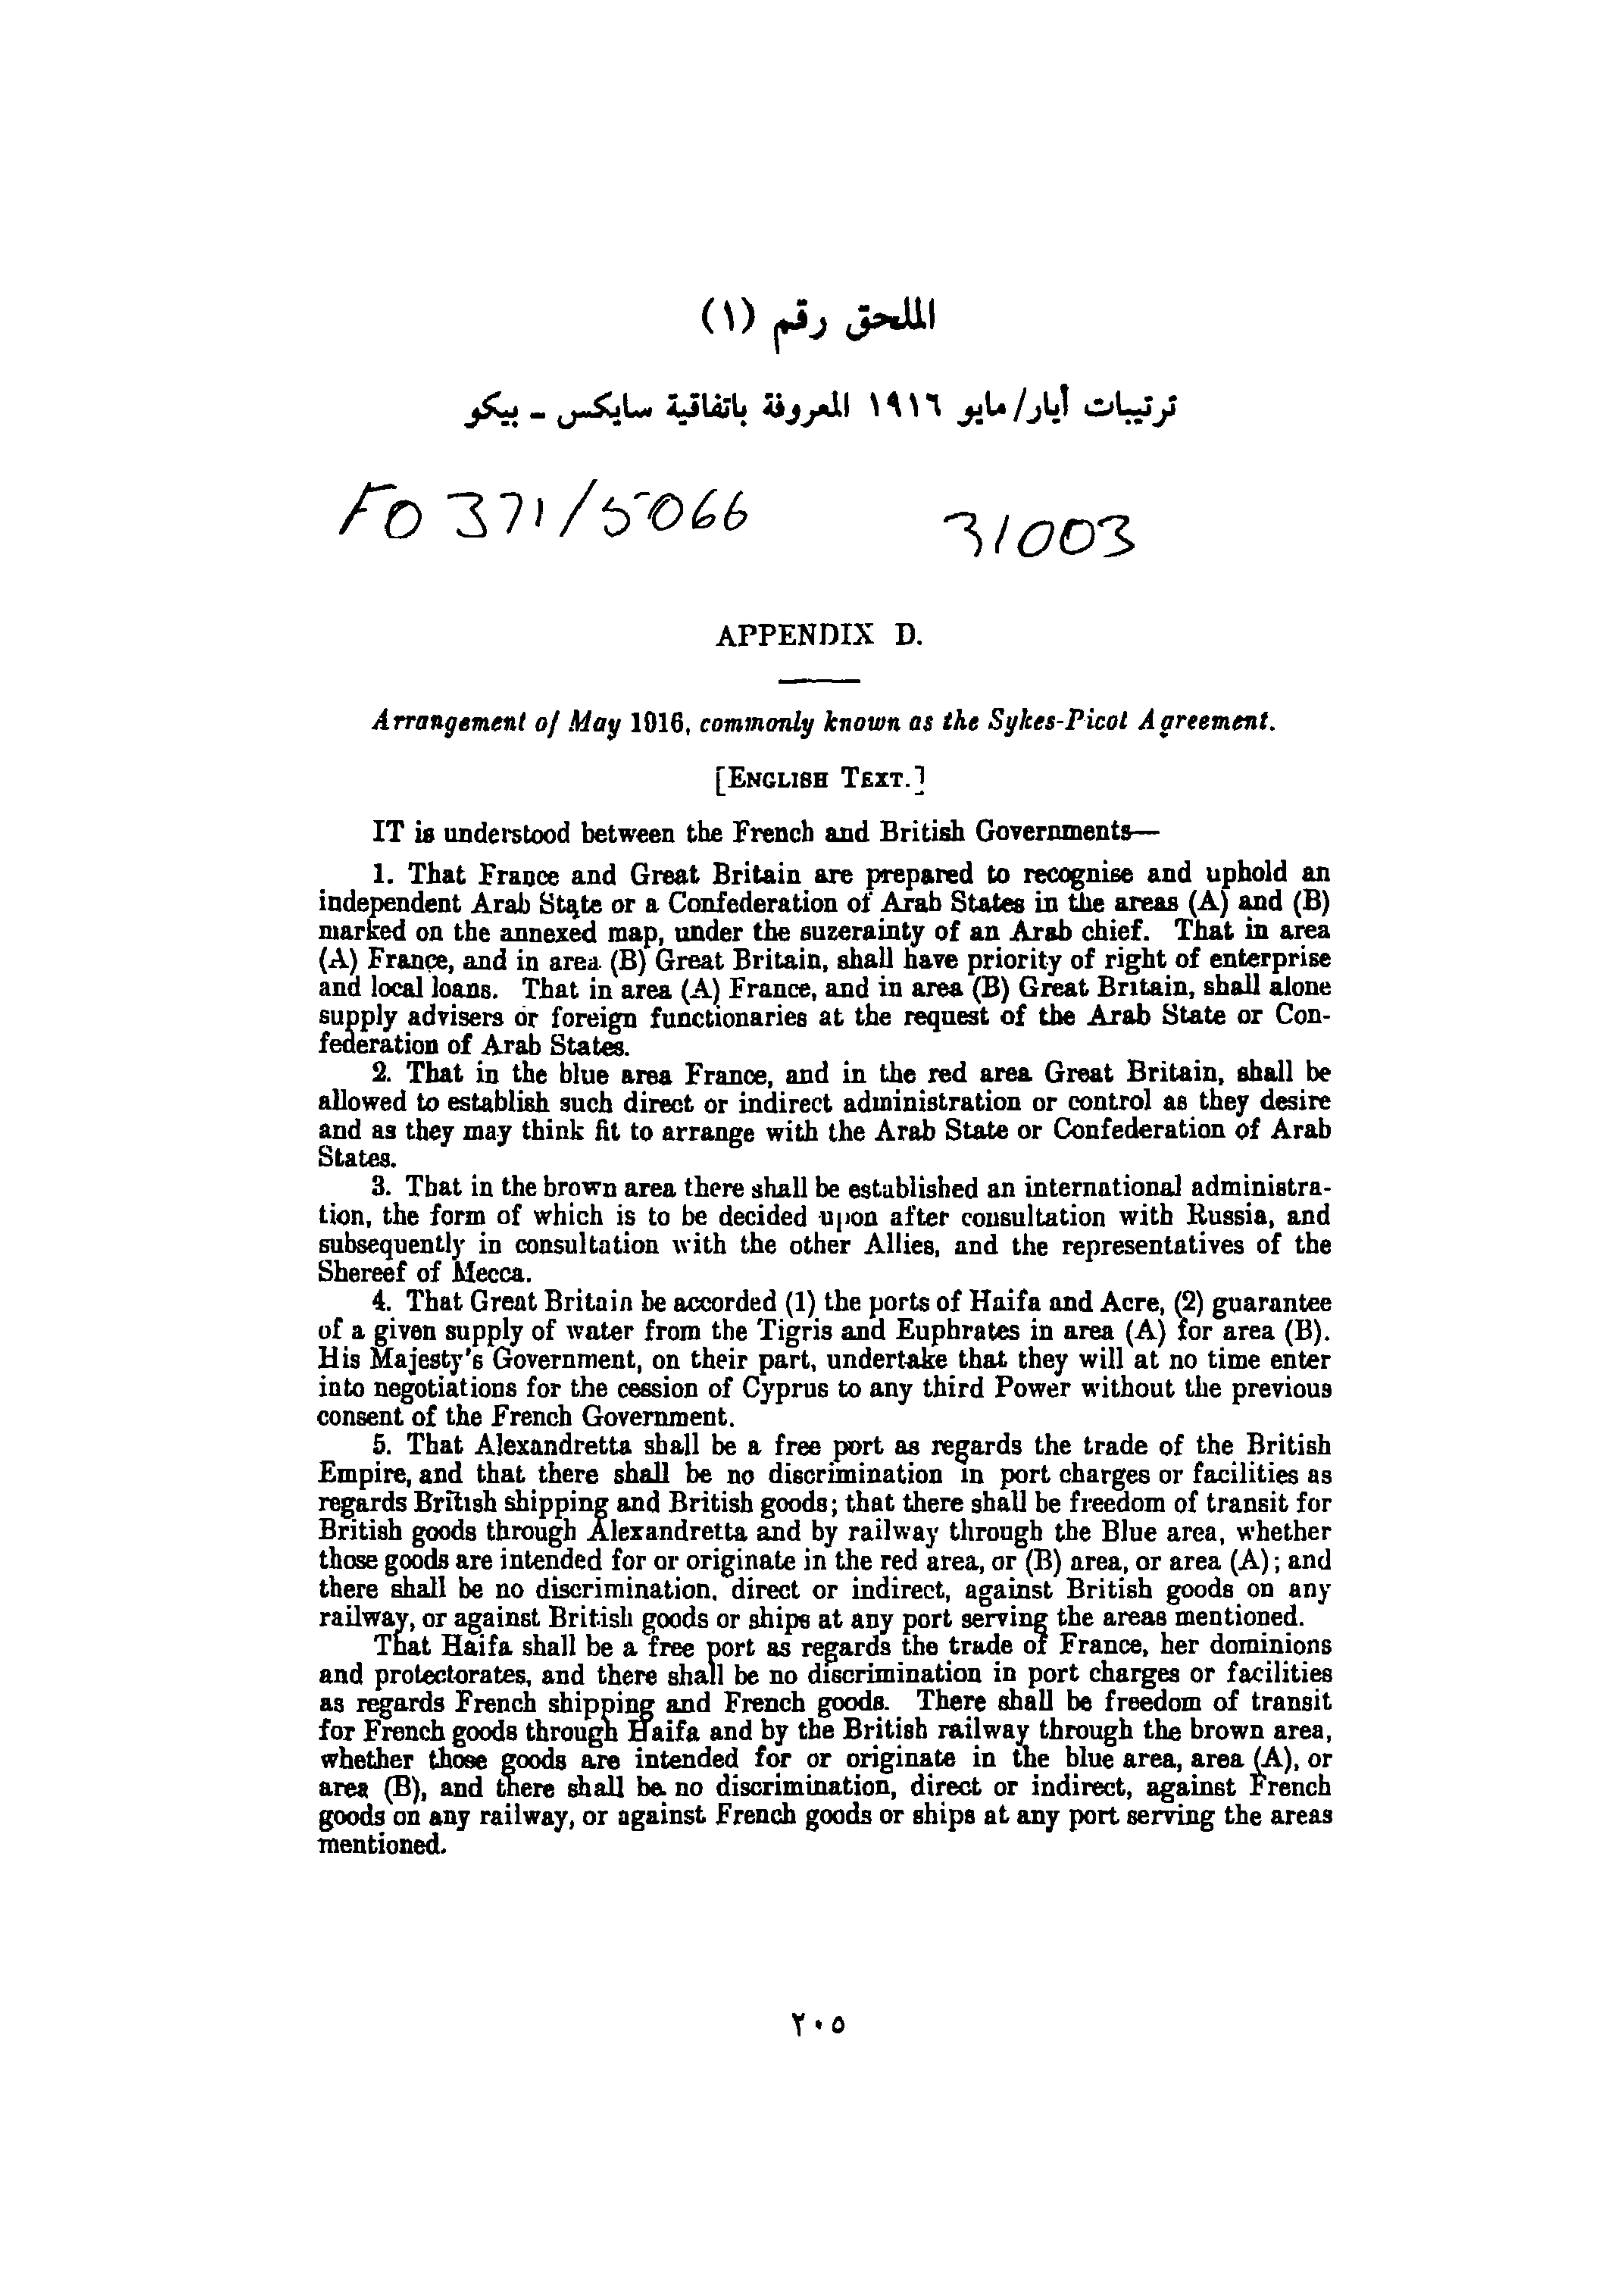 الملحق رقم (١)
ترتيبات أيار/مايو ١٩١٦ المعروفة باتفاقية سايكس - بيكو
FO 371/5066 31003
APPENDIX D.
Arrangement of May 1916, commonly known as the Sykes-Picot Agreement.
[ENGLISH TEXT.]
IT is understood between the French and British Governments—
1. That France and Great Britain are prepared to recognise and uphold an
independent Arab State or a Confederation of Arab States in the areas (A) and (B)
marked on the annexed map, under the suzerainty of an Arab chief. That in area
(A) France, and in area (B) Great Britain, shall have priority of right of enterprise
and local loans. That in area (A) France, and in area (B) Great Britain, shall alone
supply advisers or foreign functionaries at the request of the Arab State or Con-
federation of Arab States.
2. That in the blue area France, and in the red area Great Britain, shall be
allowed to establish such direct or indirect administration or control as they desire
and as they may think fit to arrange with the Arab State or Confederation of Arab
States.
3. That in the brown area there shall be established an international administra-
tion, the form of which is to be decided upon after consultation with Russia, and
subsequently in consultation with the other Allies, and the representatives of the
Shereef of Mecca.
4. That Great Britain be accorded (1) the ports of Haifa and Acre, (2) guarantee
of a given supply of water from the Tigris and Euphrates in area (A) for area (B).
His Majesty's Government, on their part, undertake that they will at no time enter
into negotiations for the cession of Cyprus to any third Power without the previous
consent of the French Government.
5. That Alexandretta shall be a free port as regards the trade of the British
Empire, and that there shall be no discrimination in port charges or facilities as
regards British shipping and British goods; that there shall be freedom of transit for
British goods through Alexandretta and by railway through the Blue area, whether
those goods are intended for or originate in the red area, or (B) area, or area (A); and
there shall be no discrimination, direct or indirect, against British goods on any
railway, or against British goods or ships at any port serving the areas mentioned.
That Haifa shall be a free port as regards the trade of France, her dominions
and protectorates, and there shall be no discrimination in port charges or facilities
as regards French shipping and French goods. There shall be freedom of transit
for French goods through Haifa and by the British railway through the brown area,
whether those goods are intended for or originate in the blue area, area (A), or
area (B), and there shall be no discrimination, direct or indirect, against French
goods on any railway, or against French goods or ships at any port serving the areas
mentioned.
٢٠٥